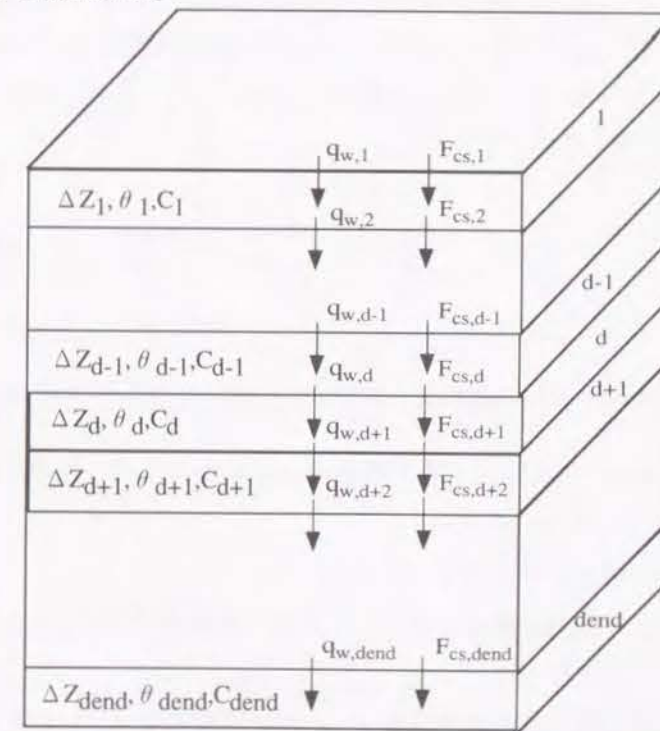 q_w,1 F_cs,1 1
ΔZ_1, θ_1, C_1
q_w,2 F_cs,2
q_w,d-1 F_cs,d-1 d-1
ΔZ_d-1, θ_d-1, C_d-1
q_w,d F_cs,d d
ΔZ_d, θ_d, C_d
q_w,d+1 F_cs,d+1 d+1
ΔZ_d+1, θ_d+1, C_d+1
q_w,d+2 F_cs,d+2
q_w,dend F_cs,dend dend
ΔZ_dend, θ_dend, C_dend